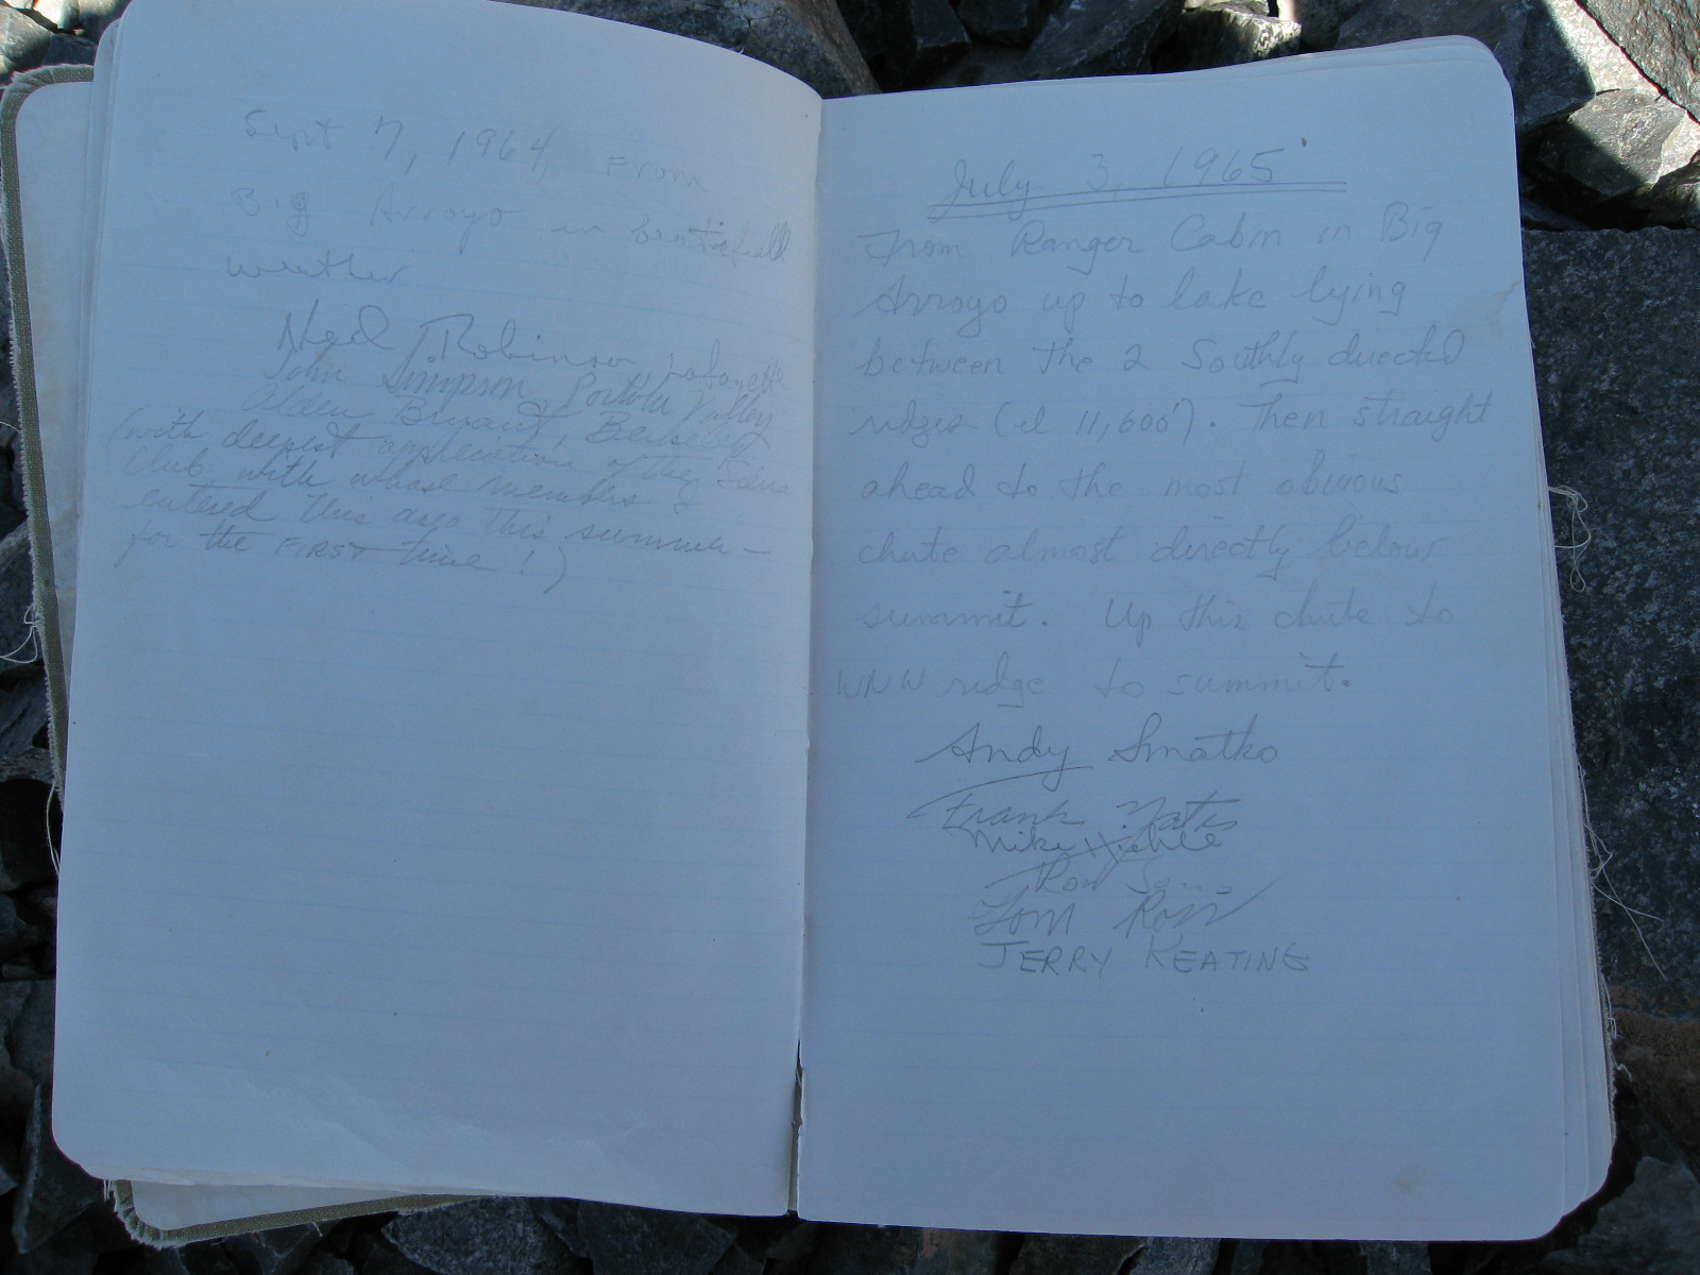 Sept 7, 1964, From
Big Arroyo in beautifull
weather
Ned Robinson, Lafayette
John Simpson, Portola Valley
Alden Bryant, Berkeley
(with deepest appreciation of the Sierra
Club with whose members I
entered this area this summer –
for the FIRST time!)
July 3, 1965
From Ranger Cabin in Big
Arroyo up to lake lying
between the 2 Southly directed
ridges (el 11,600'). Then straight
ahead to the most obvious
chute almost directly below
summit. Up this chute to
WNW ridge to summit.
Andy Smatko
Frank
Mike
Ron
Tom Ross
JERRY KEATING